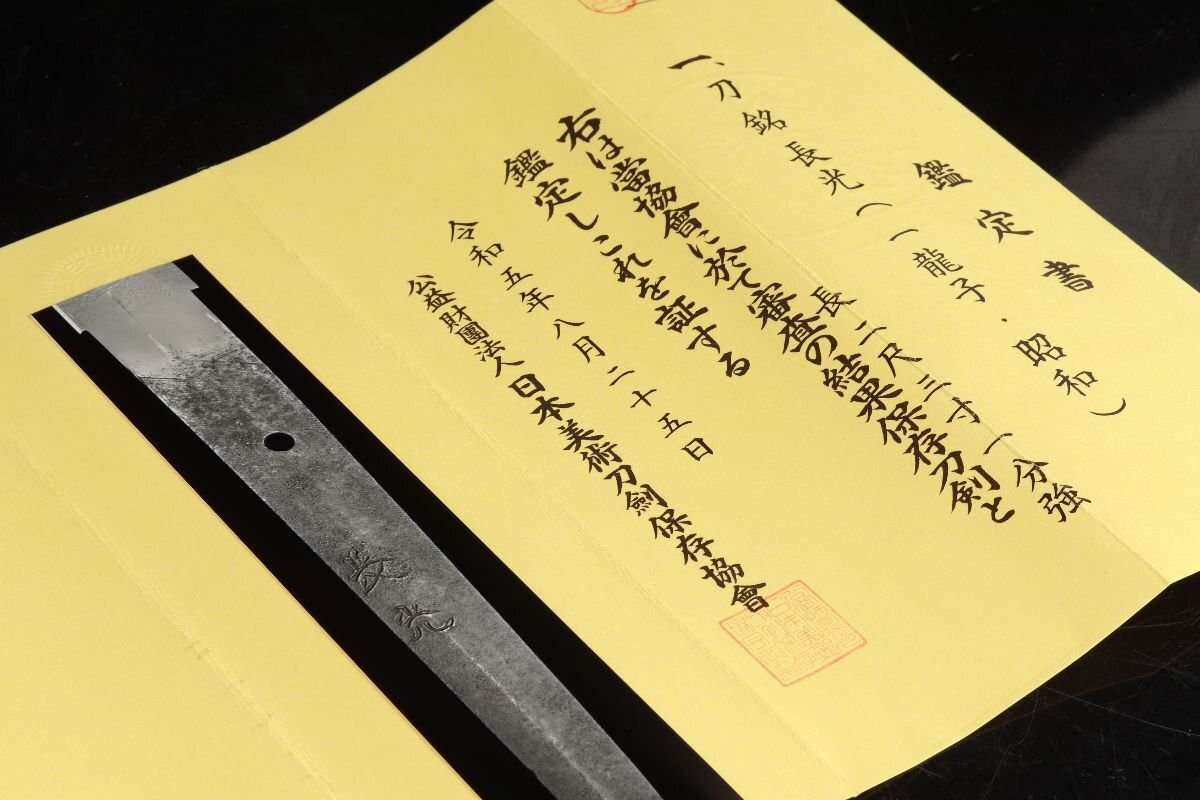 鑑定書
一、刀 銘 長光(一龍子・昭和)
長二尺三寸一分強
右は當協會に於て審査の結果保存刀剣と
鑑定しこれを証する
令和五年八月二十五日
公益財團法人日本美術刀劍保存協會
長光